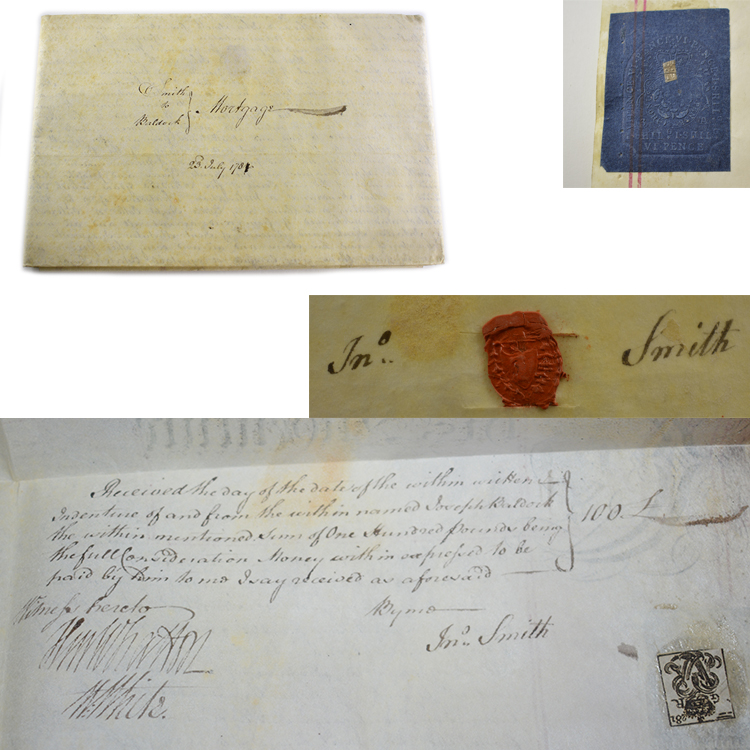 Smith
to
Baldock
Mortgage
23 July 178
VI PENCE
Jno. Smith
Received the day of the date of the within written
Indenture of and from the within named Joseph Baldock
the within mentioned Sum of One Hundred Pounds being
the full Consideration Money within expressed to be
paid by him to me I say received as aforesaid
100. £
Witness hereto
By me
Jno. Smith
White.
281